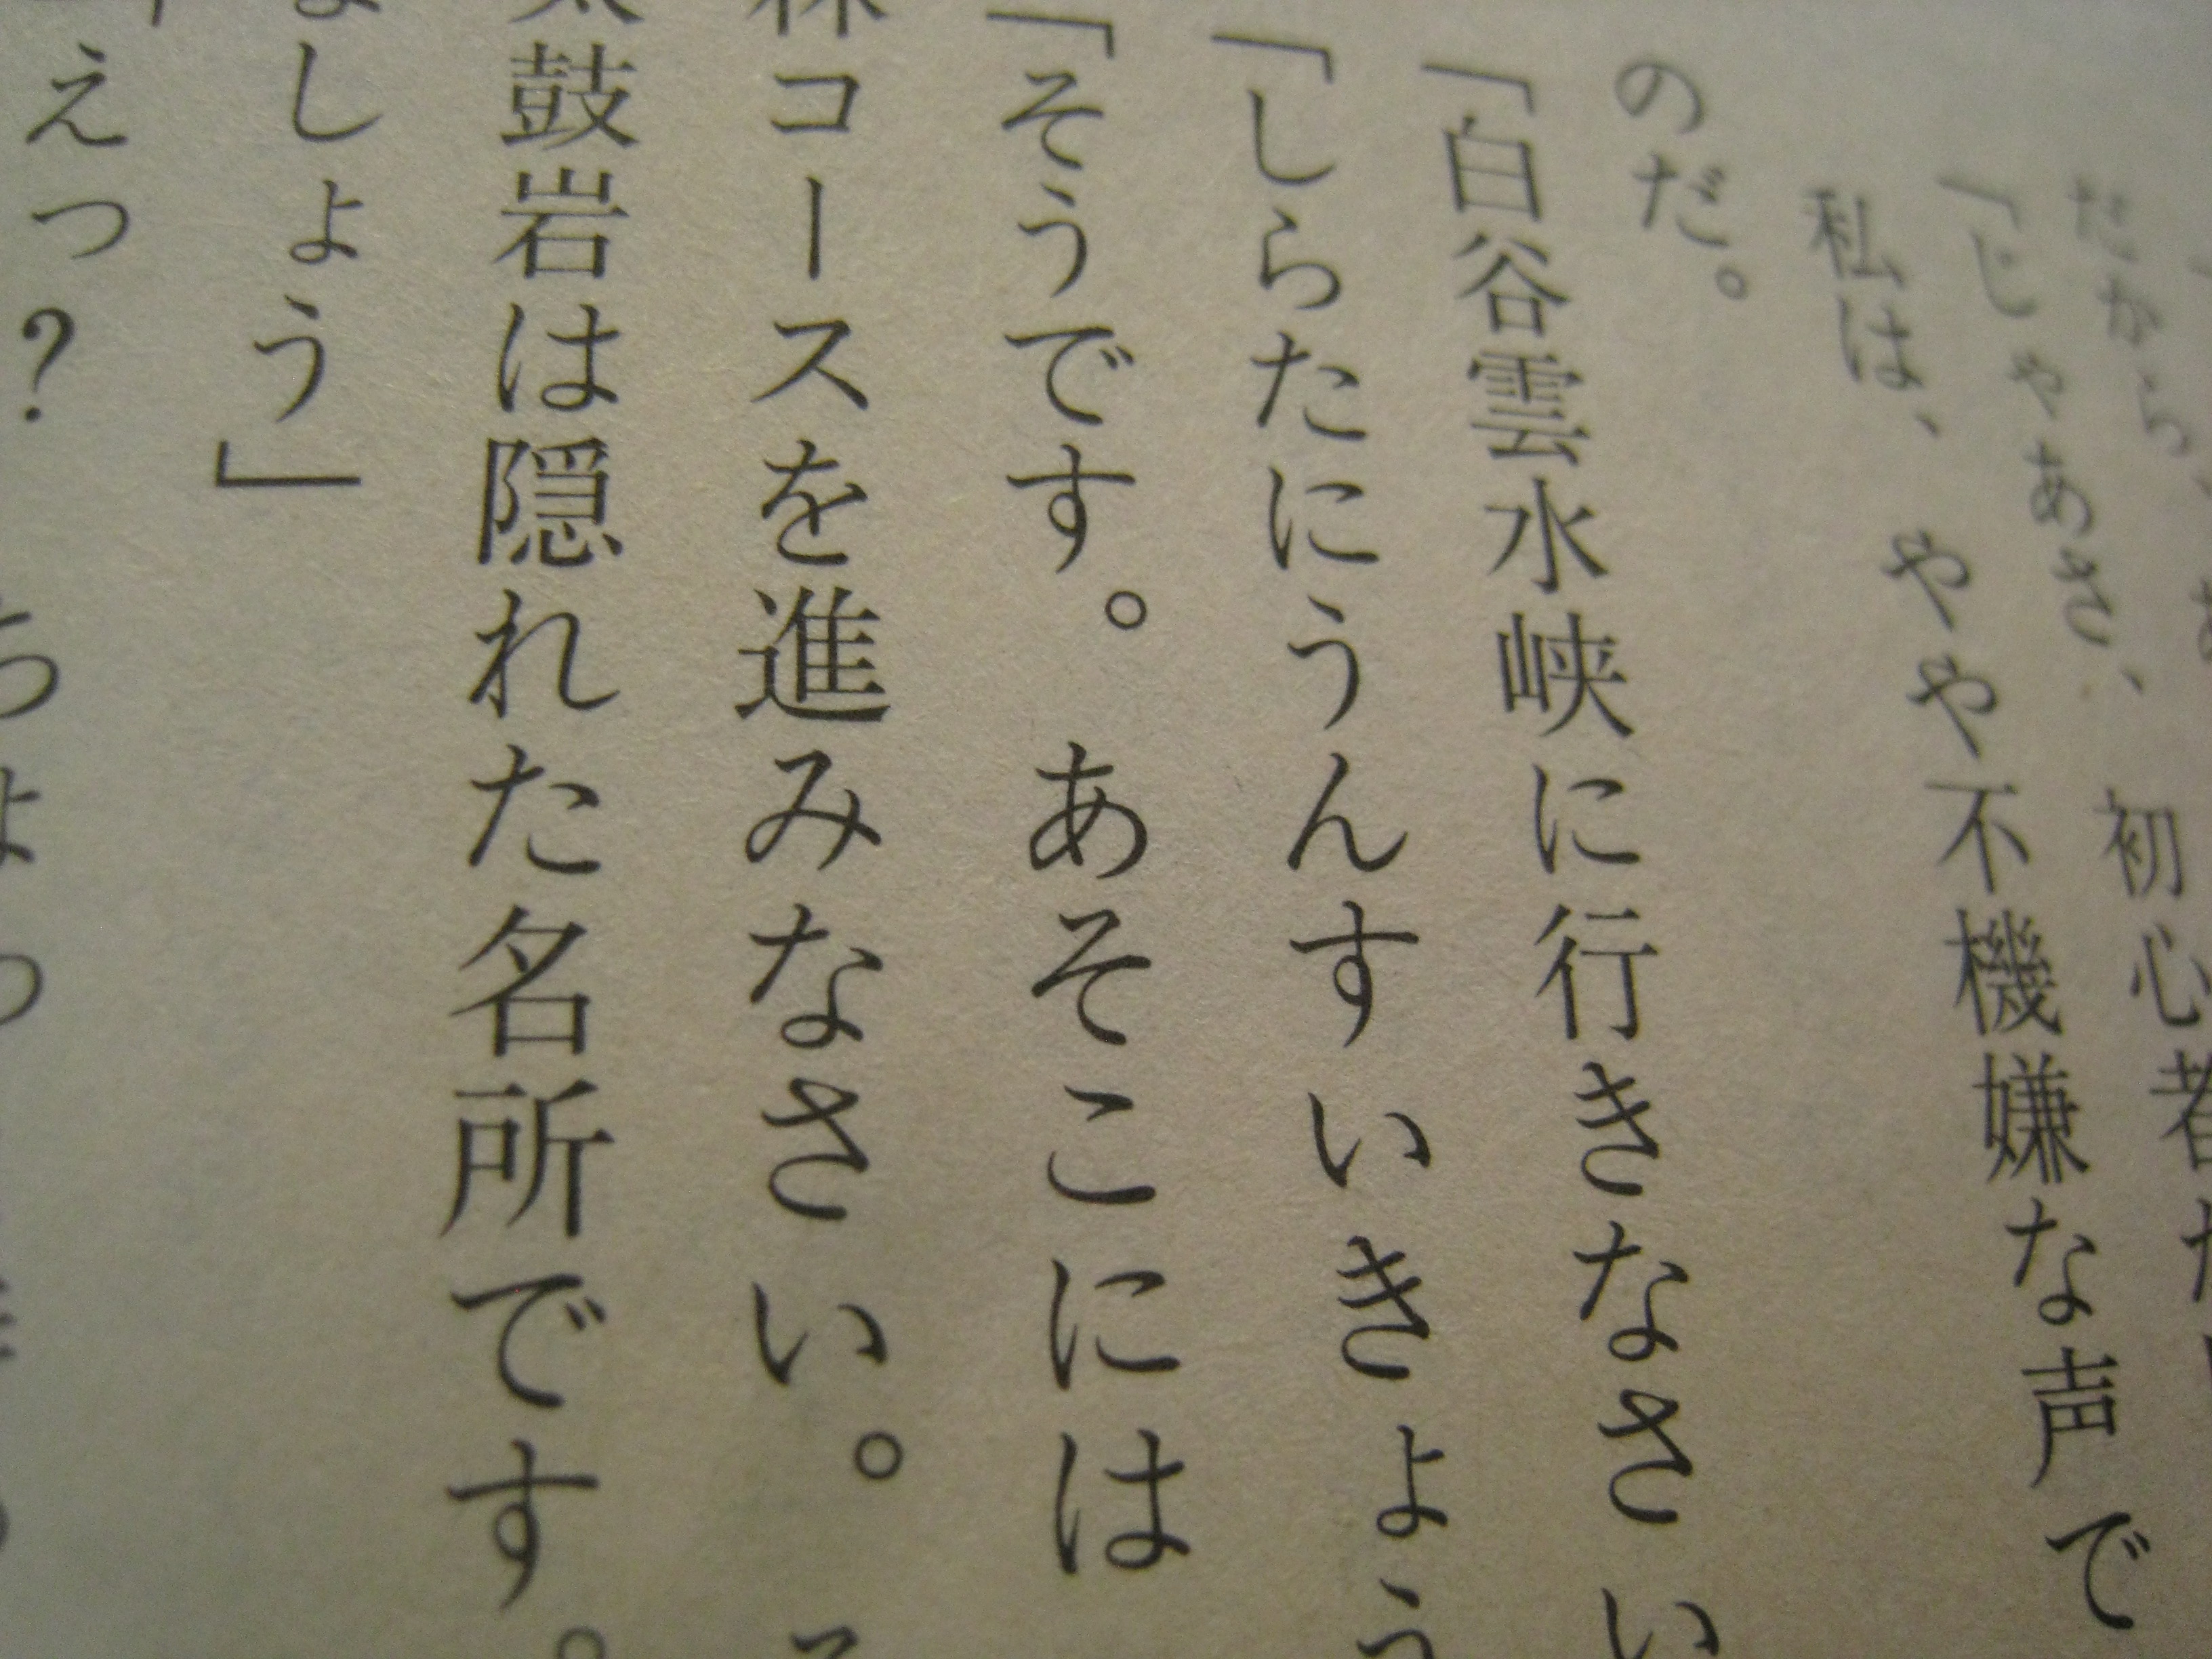 だから
「じゃあさ、初心者
私は、やや不機嫌な声で
のだ。
「白谷雲水峡に行きなさい
「しらたにうんすいきょう
「そうです。あそこには
林コースを進みなさい。そ
太鼓岩は隠れた名所です。
ましょう」
えっ？ ちょっ